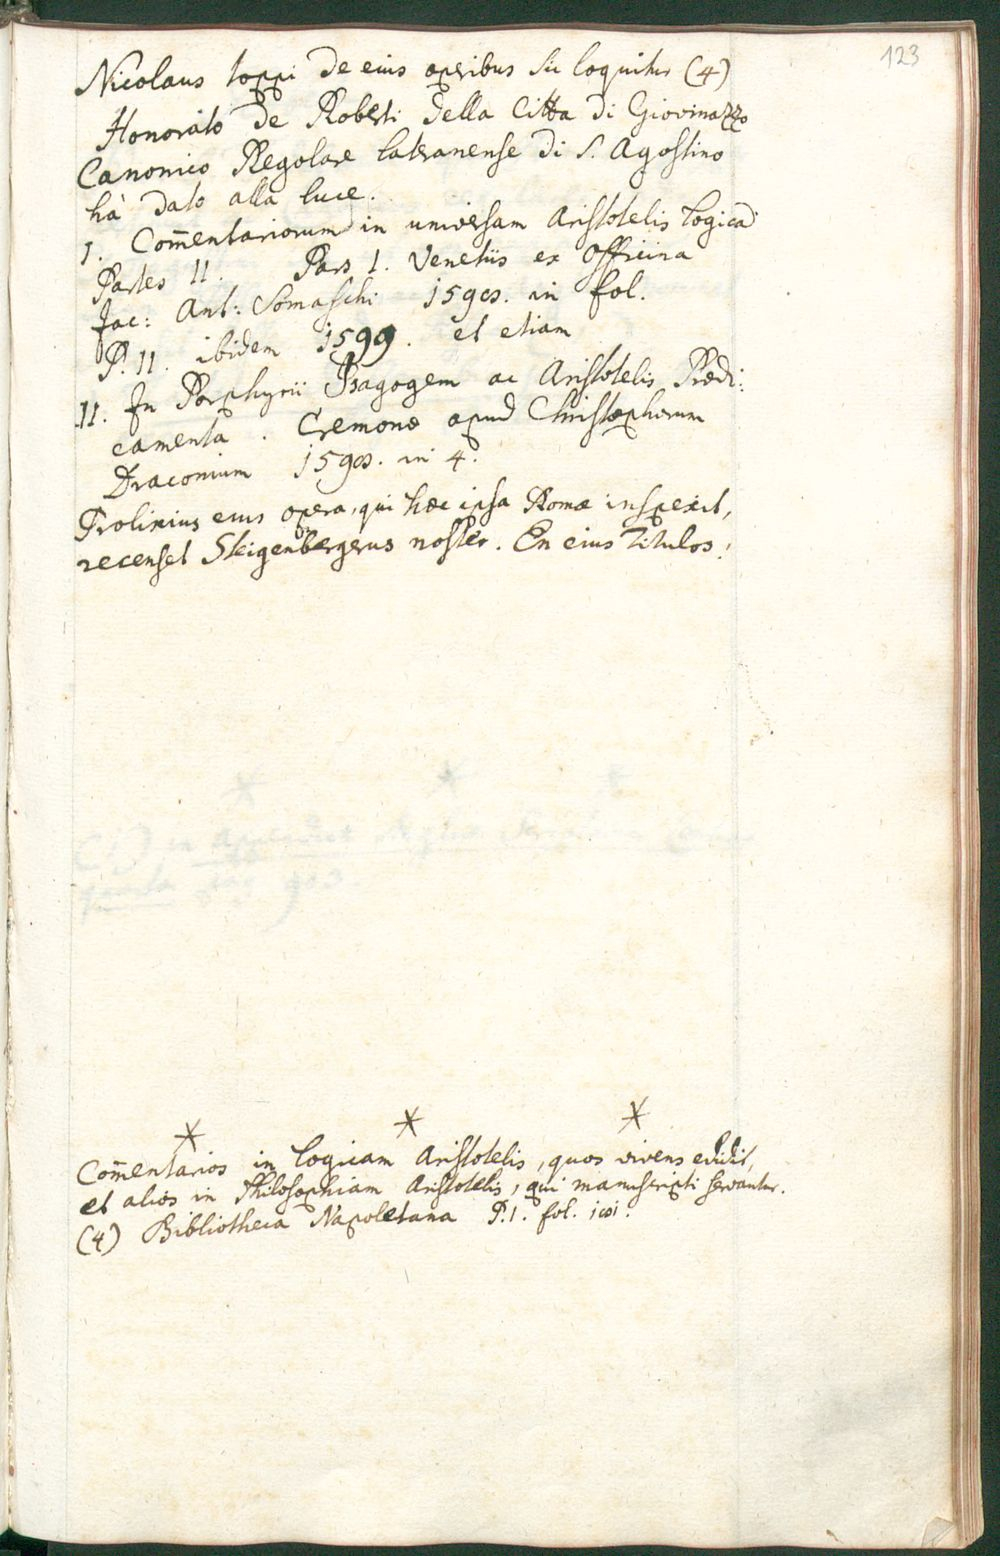 123
Nicolaus Toppi de eius operibus sic loquitur (4)
Honorato de Roberti della Citta di Giovinazzo
Canonico Regolare Lateranense di S. Agostino
hà dato alla luce.
I. Com̄entariorum in universam Aristotelis Logicā
Partes II. Pars I. Venetiis ex Officina
Jac: Ant: Somaschi in fol.
P. II. ibidem 1599. et etiam
II. In Porphyrii Isagogem ac Aristotelis Prædi:
camenta. Cremonæ apud Christophorum
Draconium in 4.
Prolixius eius opera, qui hæc ipsa Romæ inspexit,
recenset Steigenbergerus noster. En eius Titulos:
* * *
Com̄entarios in Logicam Aristotelis, quos vivens edidit,
et alios in Philosophiam Aristotelis, qui manuscripti servantur.
(4) Bibliotheca Napoletana P. I. fol.